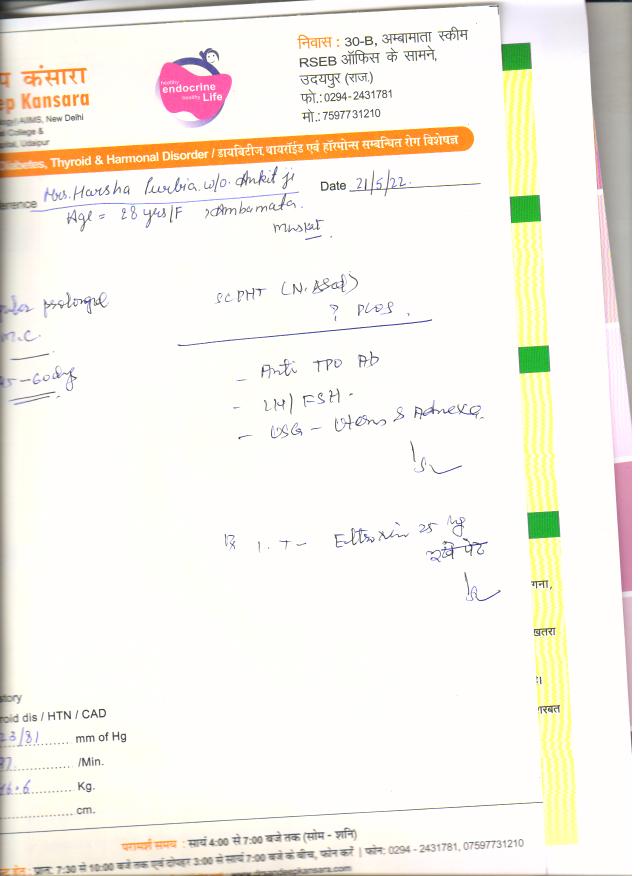 कंसारा
ep Kansara
AIIMS, New Delhi
College &
Udaipur
healthy
endocrine
healthy Life
निवास : 30-B, अम्बामाता स्कीम
RSEB ऑफिस के सामने,
उदयपुर (राज.)
फो.: 0294-2431781
मो.: 7597731210
Diabetes, Thyroid & Harmonal Disorder / डायबिटीज थायरॉईड एवं हॉरमोन्स सम्बन्धित रोग विशेषज्ञ
erence Mrs. Harsha Purbia w/o. Ankit ji Date 21/5/22.
Age = 28 yrs/F Ambamata.
Muskat
prolonged
M.C.
45-60 days
SCPHT
? PCOS.
- Anti TPO Ab
- LH/FSH -
- USG - Uterus & Adnexa
Rx 1. T - Eltroxin 25 ug
गना,
खतरा
है।
शरबत
story
roid dis / HTN / CAD
23/81 mm of Hg
/Min.
46.6 Kg.
cm.
परामर्श समय : सायं 4:00 से 7:00 बजे तक (सोम - शनि)
हेतु: प्रात: 7:30 से 10:00 बजे तक एवं दोपहर 3:00 से सायं 7:00 बजे के बीच, फोन करें | फोन: 0294 - 2431781, 07597731210
www.drsandeepkansara.com